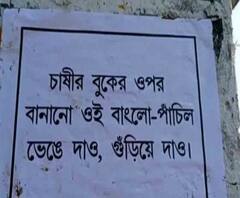 চাষীর বুকের ওপর
বানানো ওই বাংলো-পাঁচিল
ভেঙে দাও, গুঁড়িয়ে দাও।